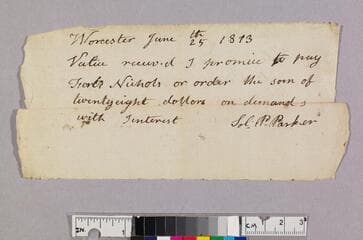 Worcester June 25th 1813
Value receivd I promise to pay
Nichols or order the sum of
twentyeight dollars on demand
with Interest P. Parker
IN. 1 CM 1 2 3